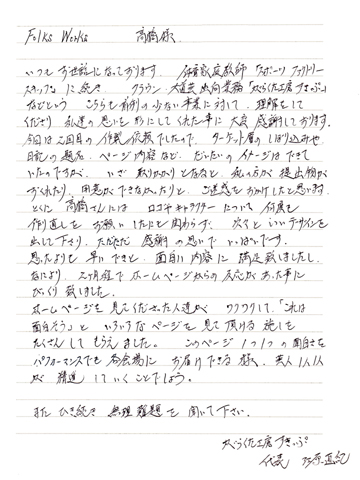 Folks Works　高橋様
いつもお世話になっております。体育家庭教師「スポーツファクトリー
スキップ」に続き　クラウン・大道芸出向業務「がらくた工房すきっぷ」
などという　こちらも前例の少ない事業に対して、理解をして
くださり　私達の思いを形にしてくれた事に大変感謝しております。
今回は二回目の作成依頼でしたので、ターゲット層のしぼり込みや
目的の題名、ページ内容など、だいたいのイメージはできて
いたのですが、いざ取りかかりとなると　私の方が提出物が
おくれたり、用意ができなかったりと、ご迷惑をおかけしたと思います。
とくに　高橋さんには　ロゴやキャラクターについて　何度も
作り直しをお願いしたにも関わらず、次々といいデザインを
出して下さり、ただただ感謝の思いでいっぱいです。
思ったよりも早いできと、面白い内容に満足致しましたし、
なにより、2ヶ月程でホームページからの反応があった事に
びっくり致しました。
ホームページを見てくださった人達が　ワクワクして「これは
面白そう」と　いろいろなページを見て頂ける施しを
たくさんしてもらえました。このページ1つ1つの面白さを
パフォーマンスでも各会場に　お届けできる様、芸人1人1人
が　精進していくことでしょう。
またひき続き　無理難題を聞いて下さい。
がらくた工房すきっぷ
代表